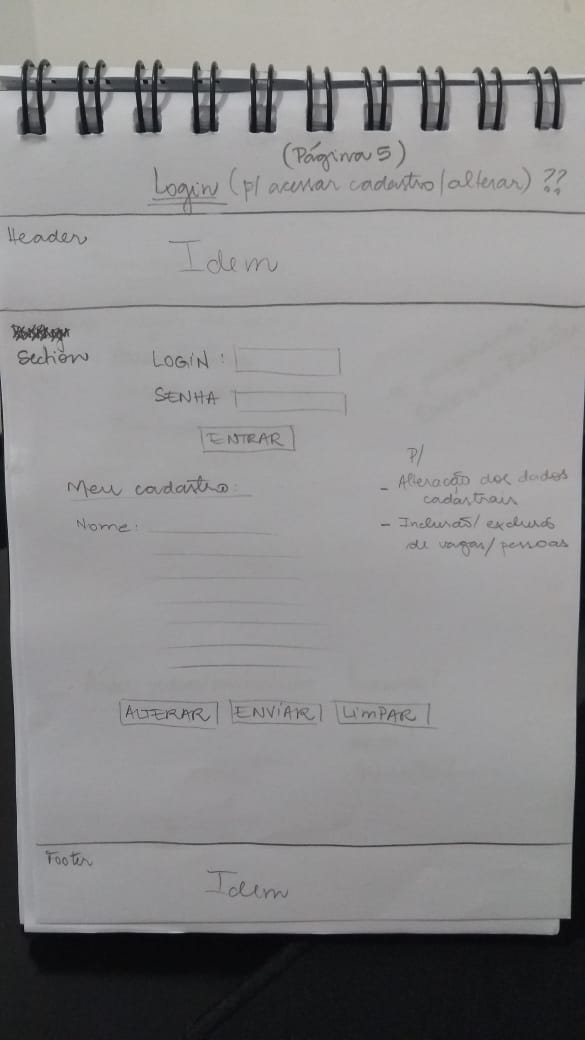 (Página 5)
Login (p/ acessar cadastro/alterar) ??
Header
Idem
Section
LOGIN :
SENHA
ENTRAR
Meu cadastro:
Nome:
P/
- Alteração dos dados
cadastrais
- Inclusão/exclusão
de vagas/pessoas
ALTERAR ENVIAR LIMPAR
Footer
Idem